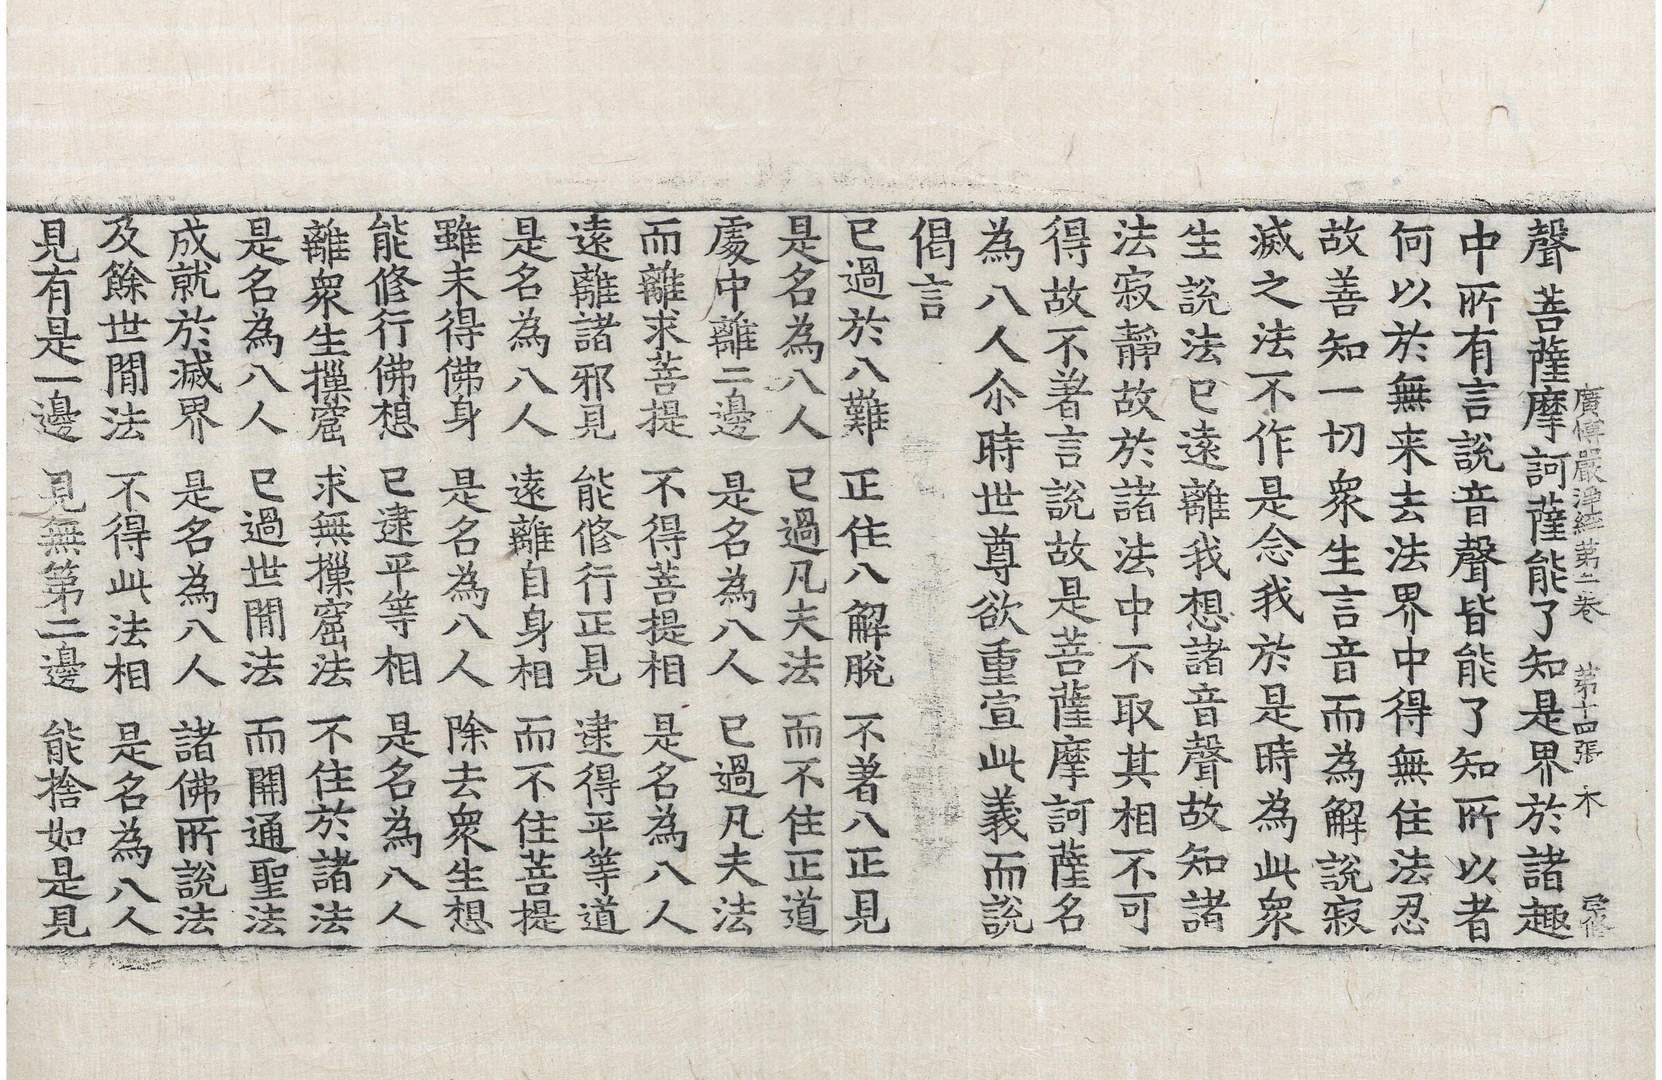 廣博嚴淨經第二卷 第十四張 木
聲菩薩摩訶薩能了知是界於諸趣
中所有言說音聲皆能了知所以者
何以於無来去法界中得無住法忍
故善知一切衆生言音而為解說寂
滅之法不作是念我於是時為此衆
生說法已遠離我想諸音聲故知諸
法寂靜故於諸法中不取其相不可
得故不著言說故是菩薩摩訶薩名
為八人尒時世尊欲重宣此義而說
偈言
已過於八難 正住八解脫 不著八正見
是名為八人 已過凡夫法 而不住正道
處中離二邊 是名為八人 已過凡夫法
而離求菩提 不得菩提相 是名為八人
遠離諸邪見 能修行正見 逮得平等道
是名為八人 遠離自身相 而不住菩提
雖未得佛身 是名為八人 除去衆生想
能修行佛想 已逮平等相 是名為八人
離衆生摷窟 求無摷窟法 不住於諸法
是名為八人 已過世閒法 而開通聖法
成就於滅界 是名為八人 諸佛所說法
及餘世閒法 不得此法相 是名為八人
見有是一邊 見無第二邊 能捨如是見